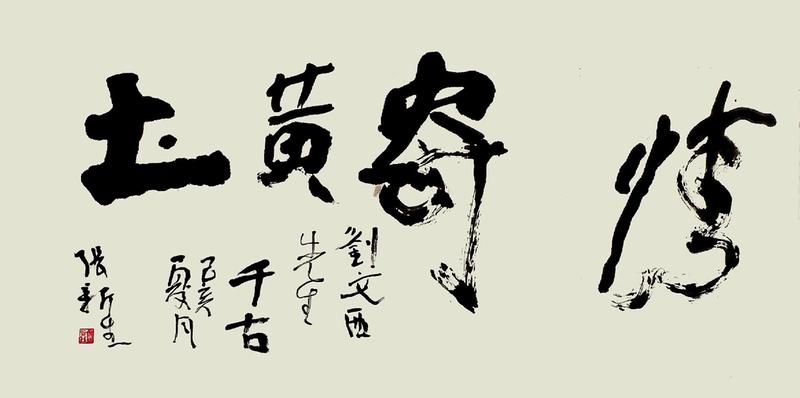 情寄黃土
劉文西
先生
千古
己亥
夏月
張新生